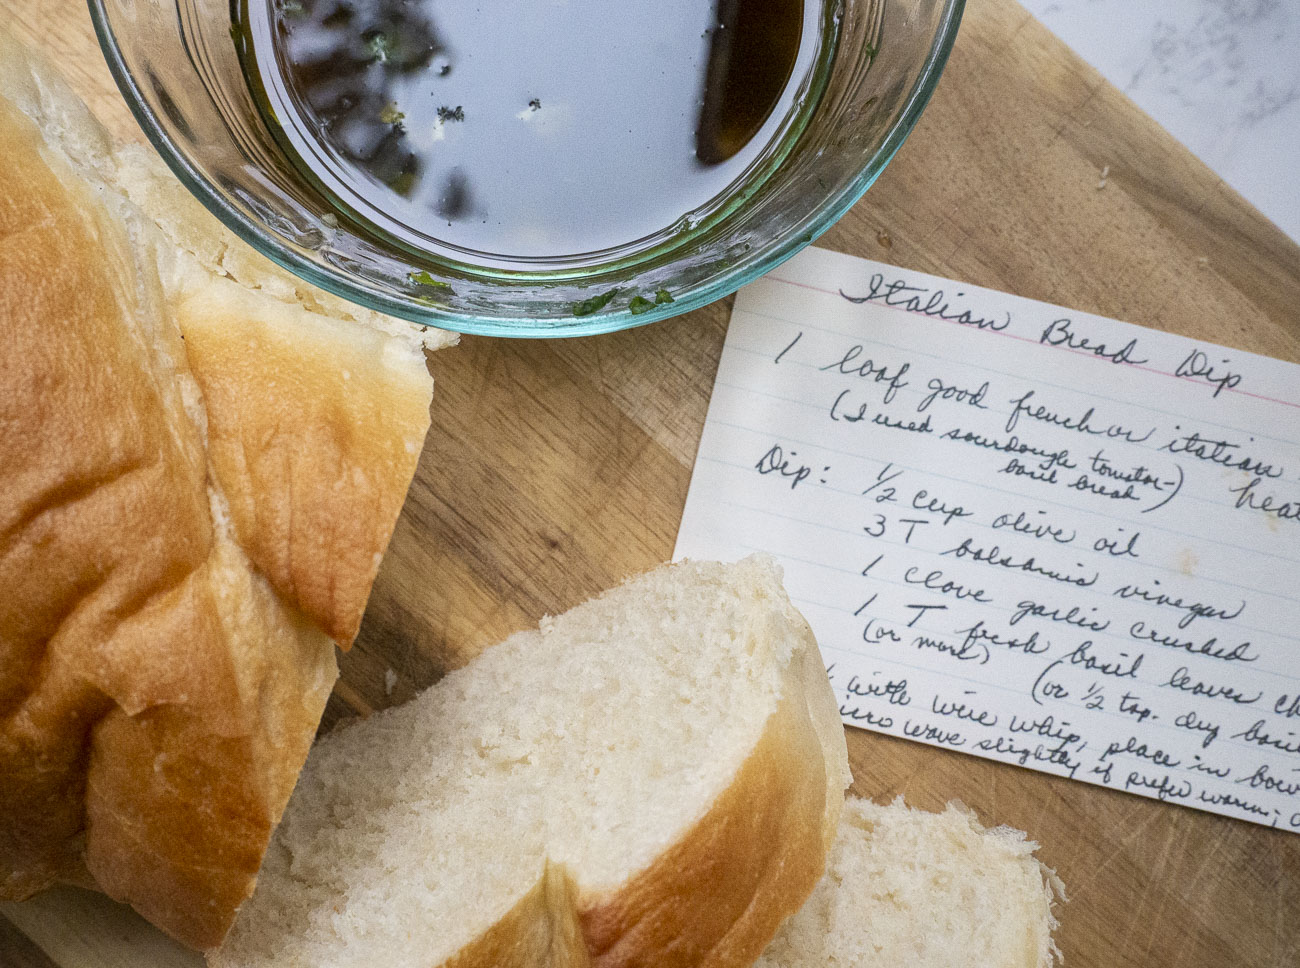 Italian Bread Dip
1 loaf good french or italian
(I used sourdough tomato-
basil bread) heat
Dip: 1/2 cup olive oil
3 T balsamic vinegar
1 clove garlic crushed
1 T fresh basil leaves ch
(or more) (or 1/2 tsp. dry basil
with wire whip, place in bow
micro wave slightly if prefer warm;